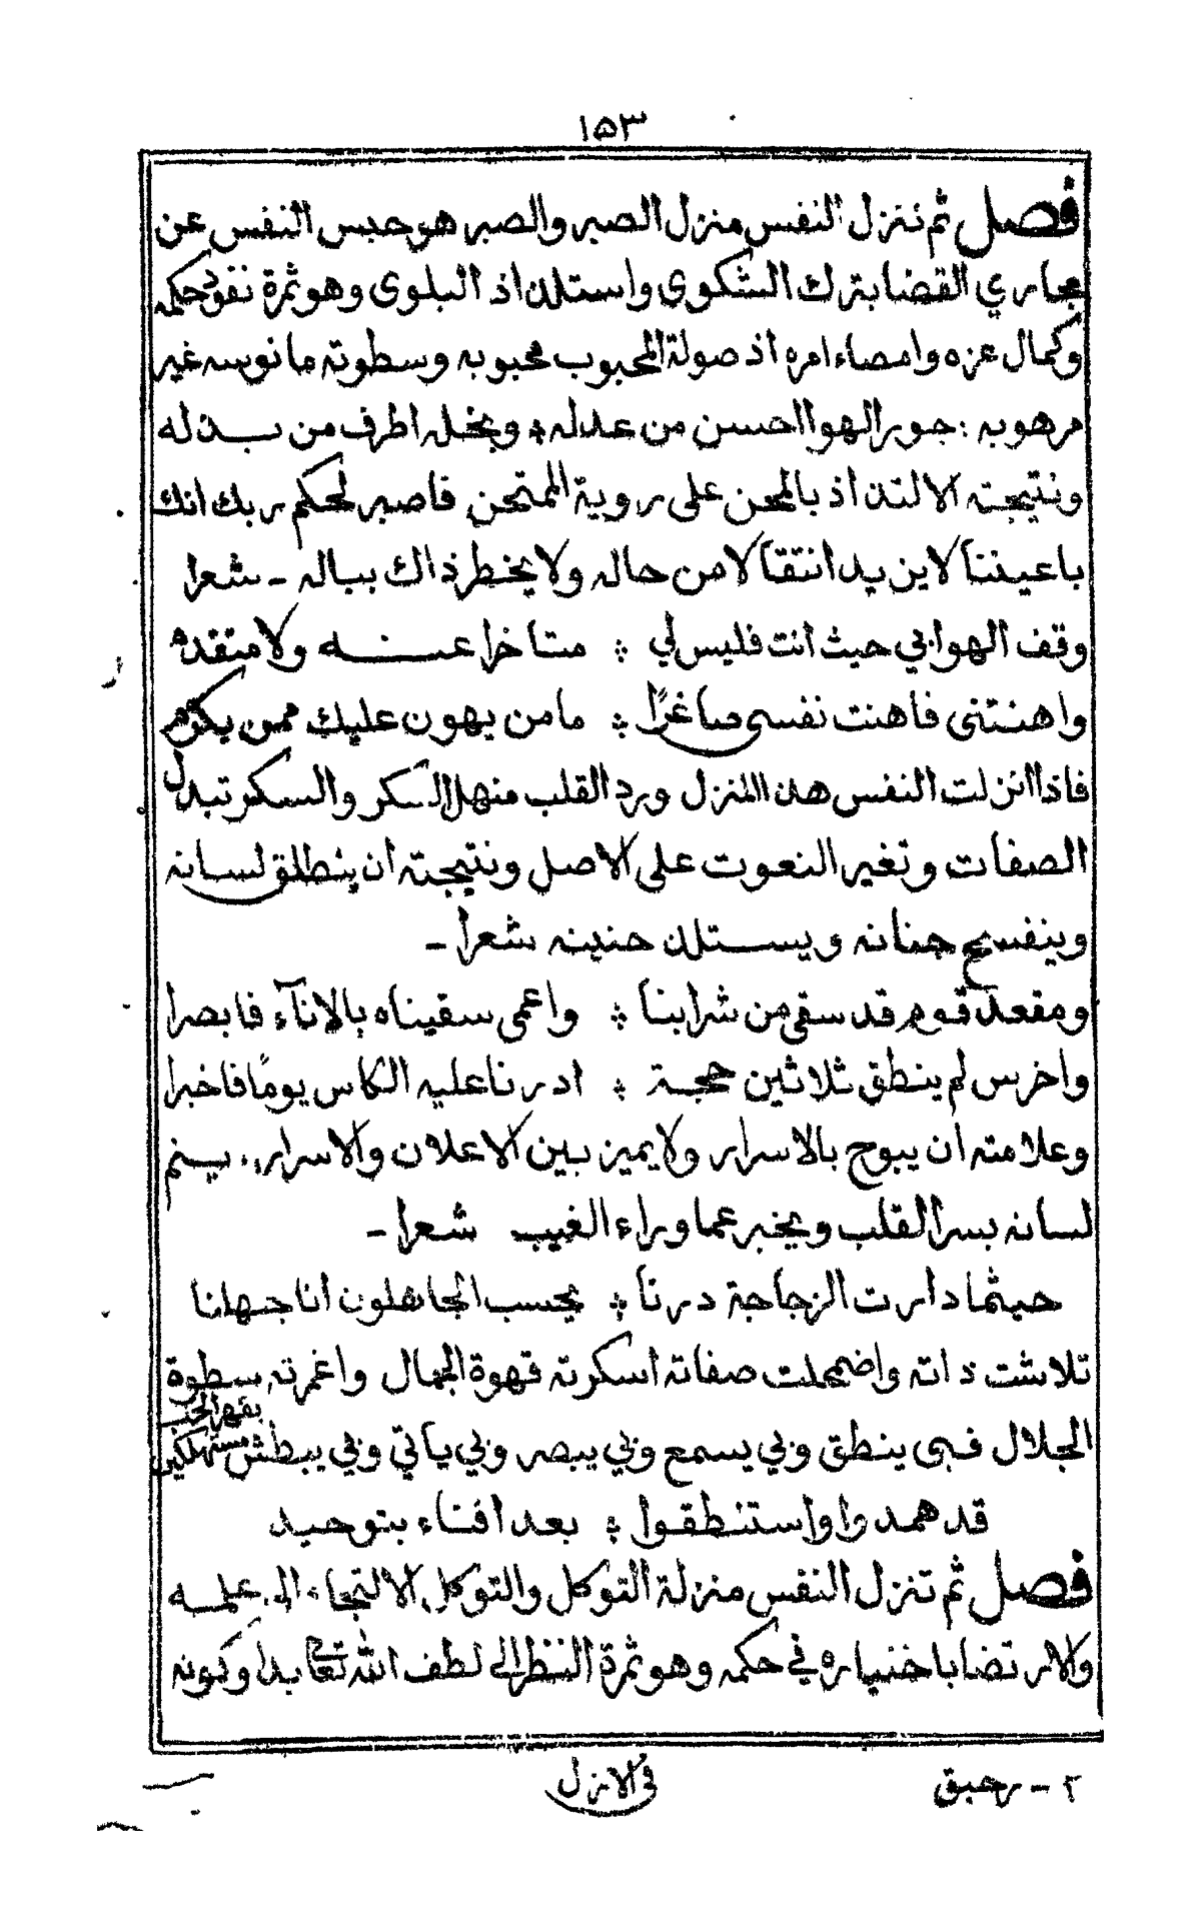 ١٥٣
فصل ثم تنزل النفس منزل الصبر والصبر هو حبس النفس عن
مجاري القضا بترك الشكوى واستلذاذ البلوى وهو ثمرة نفوذ حكمه
وكمال عزه وامضاء امره اذ صولة المحبوب محبوبه وسطوته مانوسه غير
مرهوبه : جور الهوا احسن من عدله ؛ وبخله اظرف من بذله
ونتيجته الالتذاذ بالمحن على روية الممتحن فاصبر لحكم ربك انك
باعيننا لا يريد انتقالا من حاله ولا يخطر ذاك بباله - شعرا
وقف الهوا بي حيث انت فليس لي ؛ متاخرا عنه ولا متقدم
واهنتنى فاهنت نفسى صاغرًا ؛ ما من يهون عليك ممن يكرم
فاذا انزلت النفس هذا المنزل ورد القلب منهل السكر والسكر تبدل
الصفات وتغير النعوت على الاصل ونتيجته ان ينطلق لسانه
وينفسح جنانه ويستلذ حنينه شعرا -
ومقعد قوم قد سقى من شرابنا ؛ واعمى سقيناه بالاناء فابصرا
واخرس لم ينطق ثلاثين حجة ؛ ادرنا عليه الكاس يومًا فاخبرا
وعلامته ان يبوح بالاسرار ولا يميز بين الاعلان والاسرار.. ينم
لسانه بسر القلب ويخبر عما وراء الغيب شعرا -
حيثما دارت الزجاجة درنا ؛ يحسب الجاهلون انا جهلنا
تلاشت ذاته واضمحلت صفاته اسكرته قهوة الجمال واغمرته سطوة
الجلال فبى ينطق وبي يسمع وبي يبصر وبي ياتي وبي يبطش مستهلكين بقهر الحب
قد همدوا واستنطقوا ؛ بعد افناء بتوحيد
فصل ثم تنزل النفس منزلة التوكل والتوكل الالتجاء الى علمه
والارتضا باختياره في حكمه وهو ثمرة النظر الى لطف الله تعا بدا وكونه
٢ - رحيق
فى الازل